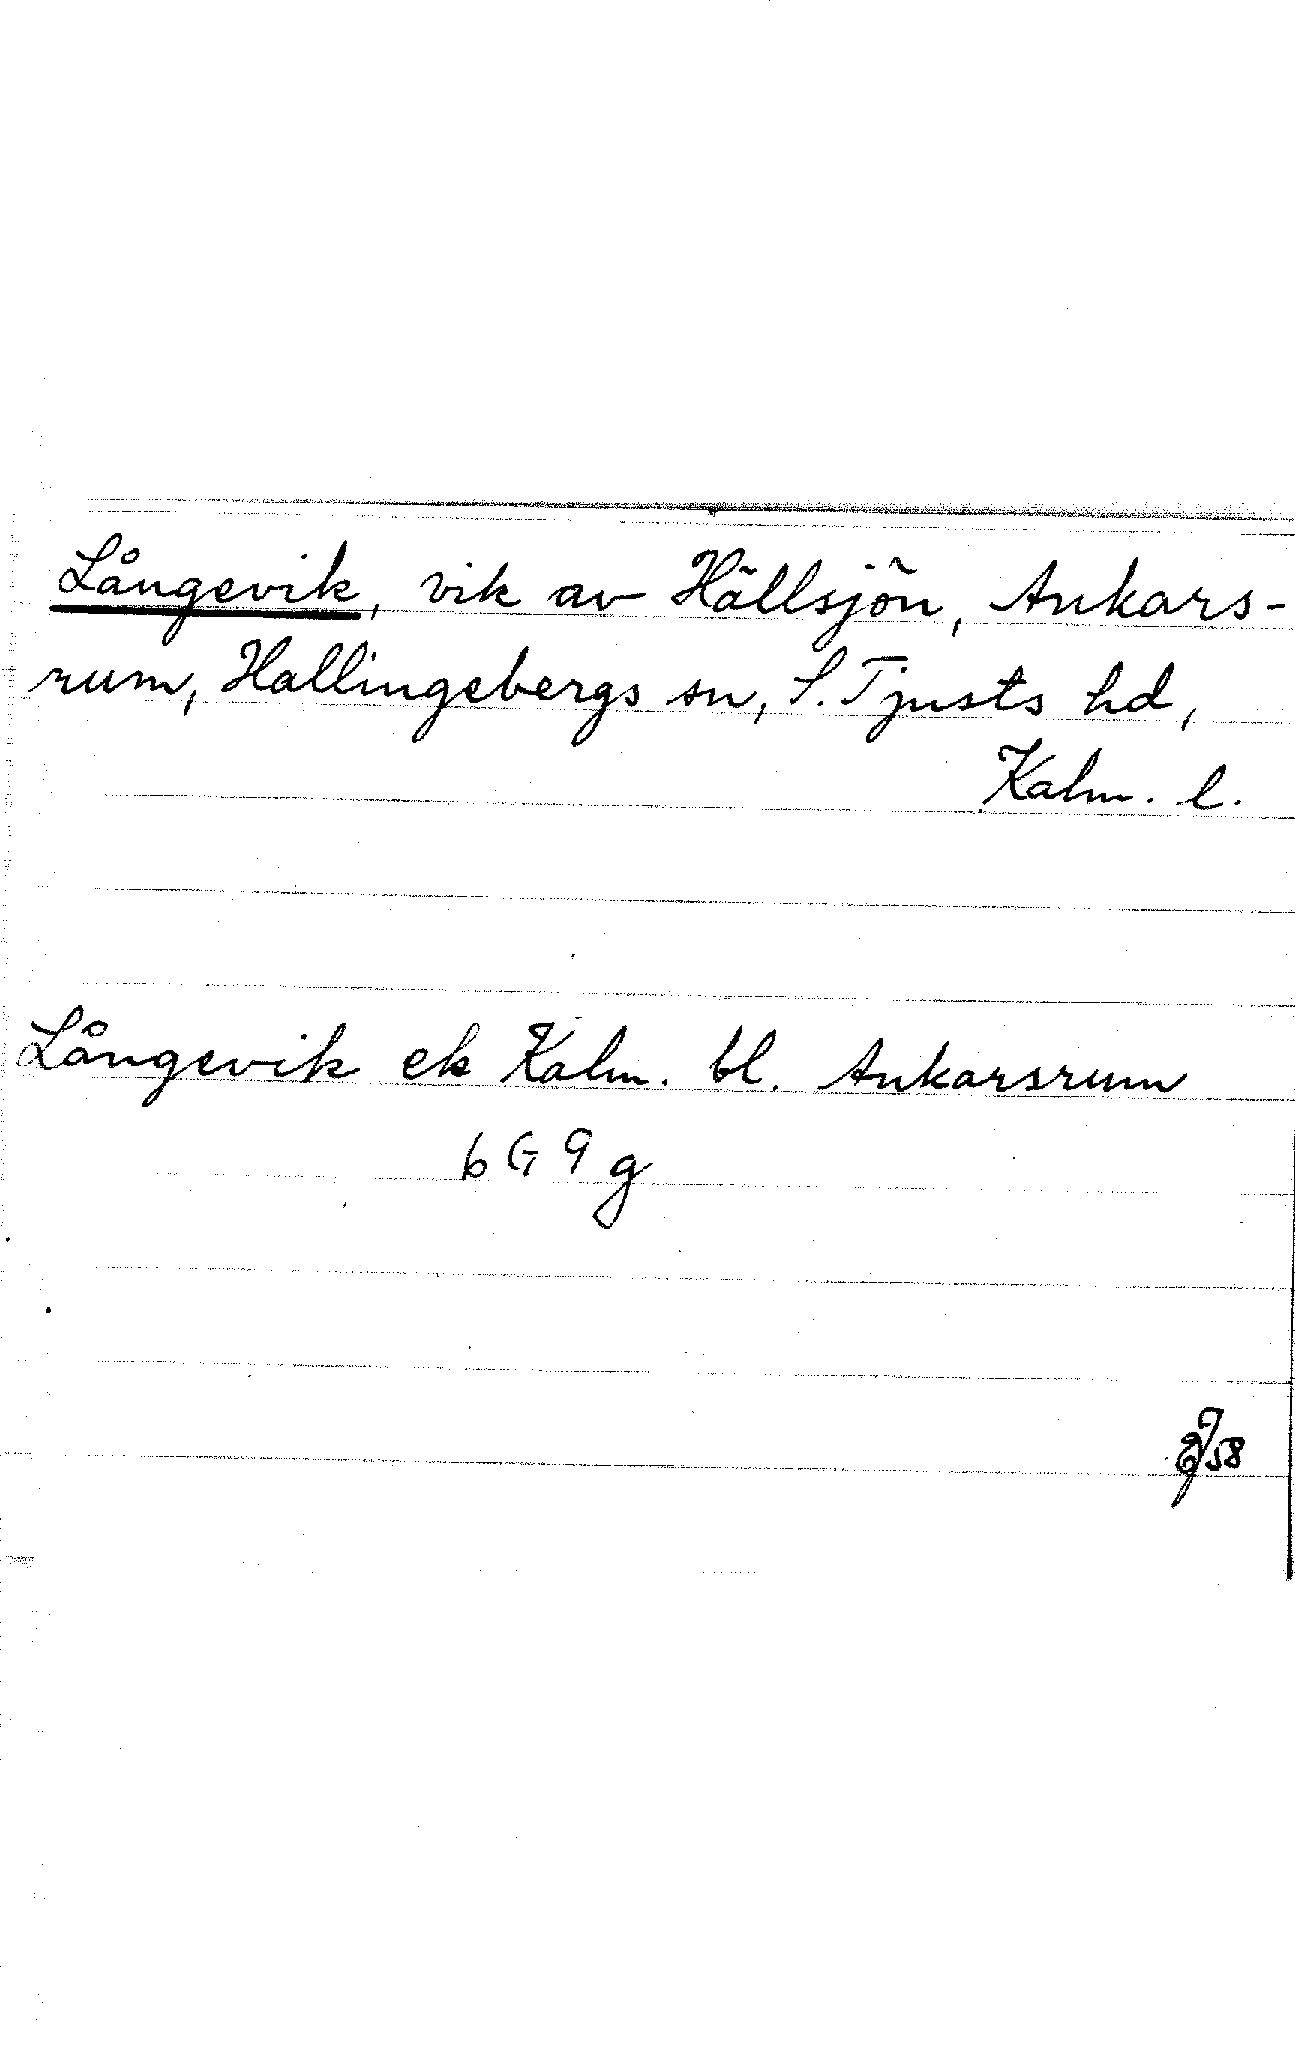 Långevik, vik av Hällsjön, Ankars-
rum, Hallingebergs sn, S. Tjusts hd,
Kalm. l.
Långevik ek Kalm. bl. Ankarsrum
6 G 9 g
58